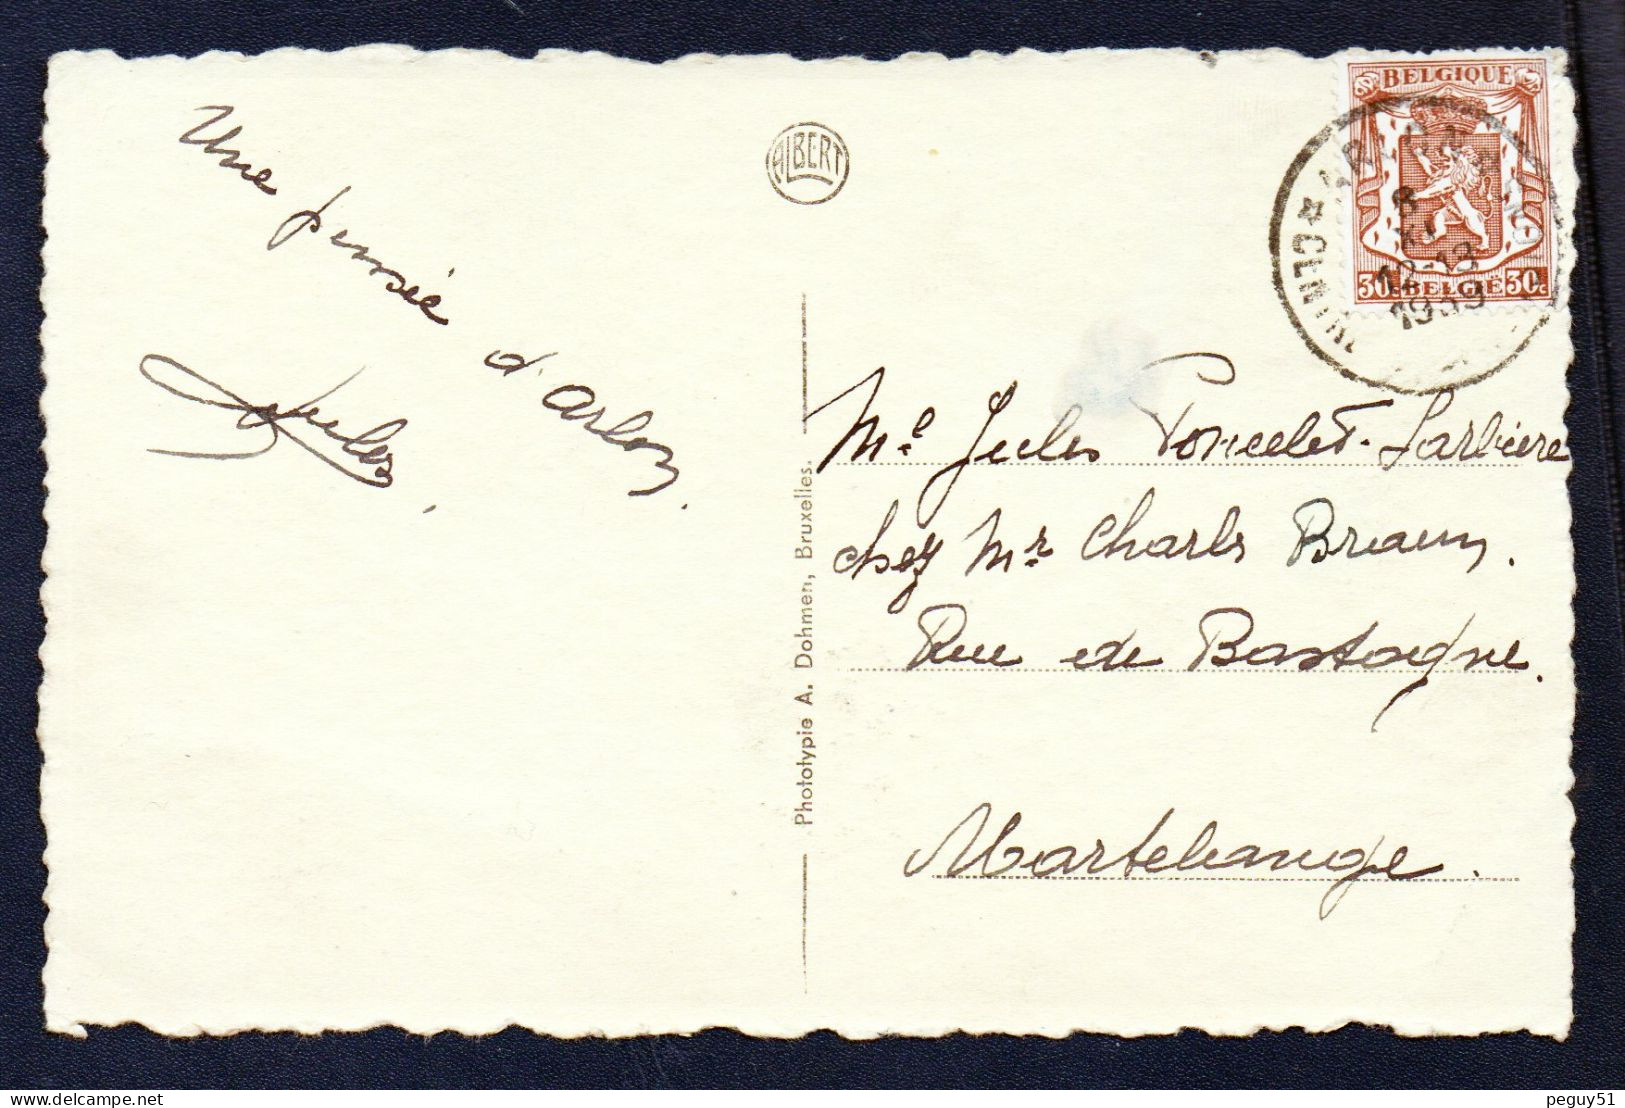 Une pensée d'Arlon.
Jules.
ALBERT
Phototypie A. Dohmen, Bruxelles.
BELGIQUE
30c BELGIË 30c
ARLON
8
12-13
1939
Me Jules Poncelet-Larbiere
chez Mr Charles Braun.
Rue de Bastogne.
Martelange.
peguy51